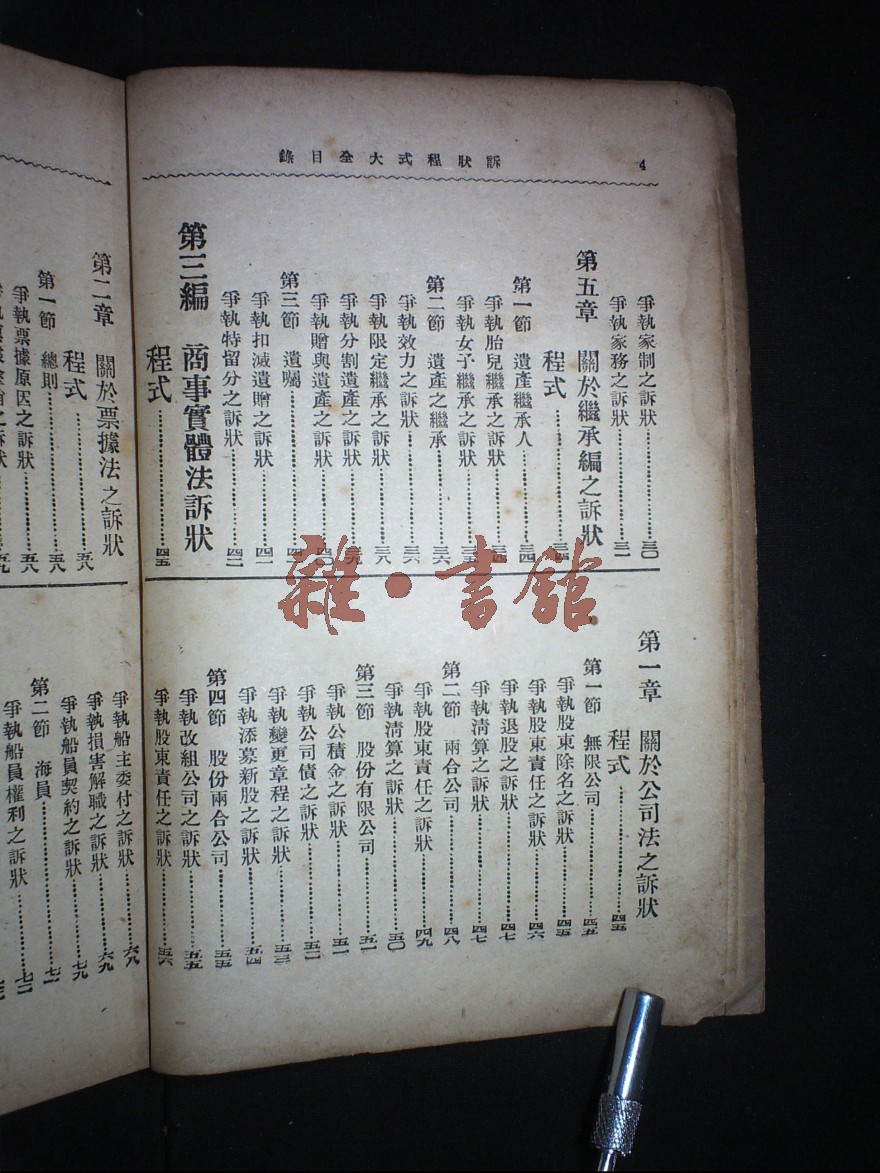 訴狀程式大全目錄
4
爭執家制之訴狀……三〇
爭執家務之訴狀……三一
第五章 關於繼承編之訴狀
程式
第一節 遺產繼承人……三四
爭執胎兒繼承之訴狀
爭執女子繼承之訴狀
第二節 遺產之繼承……三六
爭執效力之訴狀……三六
爭執限定繼承之訴狀……三八
爭執分割遺產之訴狀
爭執贈與遺產之訴狀
第三節 遺囑
爭執扣減遺贈之訴狀……四一
爭執特留分之訴狀……四二
第三編 商事實體法訴狀
程式……四五
第一章 關於公司法之訴狀
程式……四五
第一節 無限公司……四五
爭執股東除名之訴狀……四五
爭執股東責任之訴狀……四六
爭執退股之訴狀……四七
爭執清算之訴狀……四七
第二節 兩合公司……四八
爭執股東責任之訴狀……四九
爭執清算之訴狀……五〇
第三節 股份有限公司……五一
爭執公積金之訴狀……五一
爭執公司債之訴狀……五二
爭執變更章程之訴狀……五三
爭執添募新股之訴狀……五四
第四節 股份兩合公司……五五
爭執改組公司之訴狀……五五
爭執股東責任之訴狀……五六
第二章 關於票據法之訴狀
程式……五八
第一節 總則……五八
爭執票據原因之訴狀……五八
爭執船主委付之訴狀……六八
爭執損害解職之訴狀……六九
爭執船員契約之訴狀
第二節 海員……七一
爭執船員權利之訴狀……七二
雜·書館